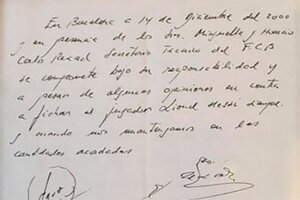 En Barcelona a 14 de diciembre del 2000
y en presencia de los Srs. Minguella y Horacio
Carlo Rexach Secretario Técnico del F.C.B
se compromete bajo su responsabilidad y
a pesar de algunas opiniones en contra
a fichar al jugador Lionel Messi siempre
y cuando nos mantengamos en las
cantidades acordadas